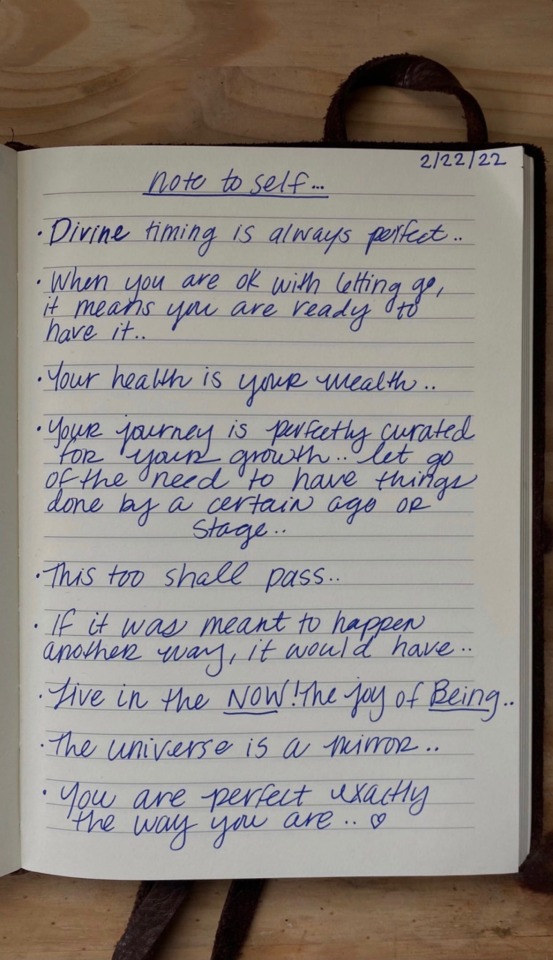 2/22/22
note to self...
• Divine timing is always perfect..
• When you are ok with letting go,
it means you are ready to
have it..
• Your health is your wealth..
• Your journey is perfectly curated
for your growth.. let go
of the need to have things
done by a certain age or
stage..
• This too shall pass..
• If it was meant to happen
another way, it would have..
• Live in the NOW! The joy of Being..
• The universe is a mirror..
• You are perfect exactly
the way you are.. ♡